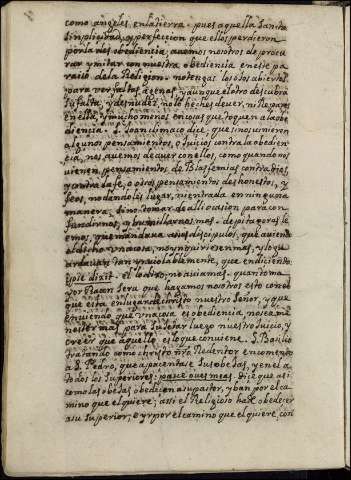 como angeles en la tierra. pues aquella Sancta
Simplicidad, y perfeccion que ellos perdieron
por la desobediencia, avemos nosotros de procu
rar ymitar con nuestra obediencia en este pa
raiso de la Religion. no tenga los ojos abiertos
para ver faltas agenas, y aunque el otro descubra
su falta, y desnudez, no lo heches de ver, ni Repares
en ella, y mucho menos en cosas que toquen a la obe
diencia. S. Joan climaco dice, que si nos vinieren
algunos pensamientos, o Juicios contra la obedien
cia, nos avemos de aver con ellos, como quando nos
vienen pensamientos de Blasfemias contra dios,
y contra la fe, o otros pensamientos deshonestos, y
feos, no dandoles lugar, ni entrada en ninguna
manera, sino tomar de alli ocasion para con
fundirnos, y humillarnos mas. de pitagoras le
emos, que mandava a sus discipulos, que aviendo
el dicho una cosa, no ynquiriesen mas, y lo gu
ardavan tan ynviolablemente, que en diciendo
ipse dixit. el lo dixo, no avia mas. quanto ma
yor Raçon sera que hagamos nosotros esto con el
que esta en lugar de christo nuestro Señor, y que
en viendo que una cosa es obediencia, no sea me
nester mas, para sujetar luego nuestro Juicio, y
creer que aquello es lo que conviene. S. Basilio
tratando como christo nro Redentor encomendo
a S. Pedro, que apacentase sus obejas, y en el a
todos los superiores: pasce oves meas. Dize que asi
como las obejas obedecen a su pastor, y ban por el ca
mino que el quiere; assi el Religioso ha de obedecer
a su superior, e yr por el camino que el quiere, con